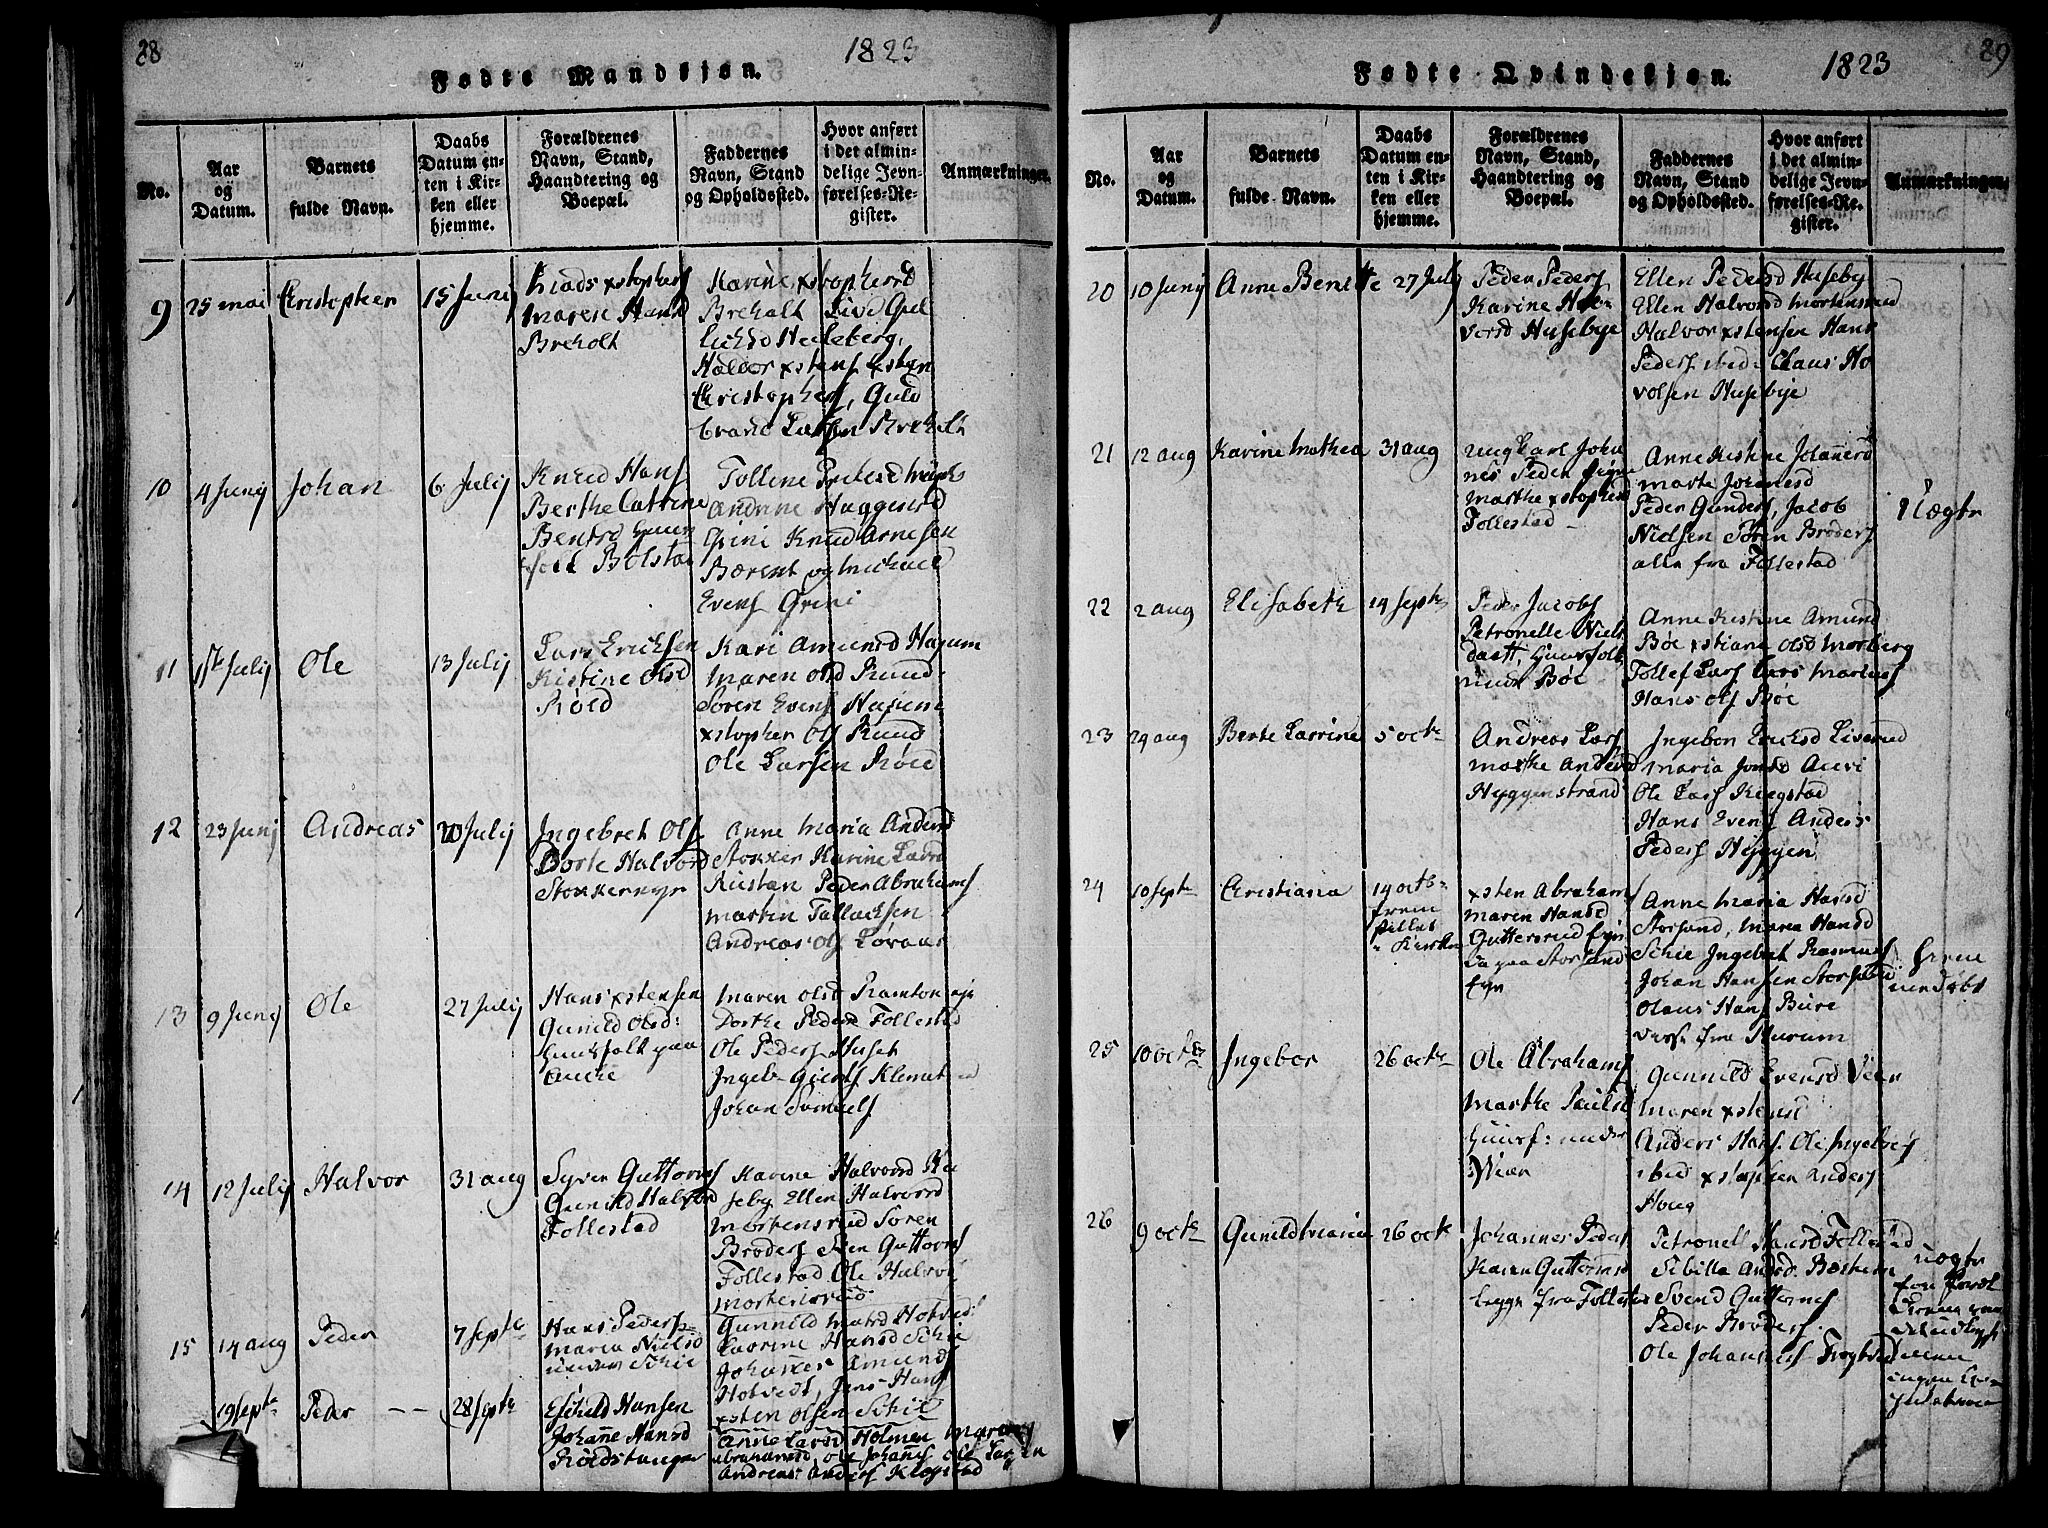 28
1823
Fødte Mandkjøn.
No.
Aar
og
Datum.
Barnets
fulde Navn.
Daabs
Datum en-
ten i Kir-
ken eller
hjemme.
Forældrenes
Navn, Stand,
Haandtering og
Boepæl.
Faddernes
Navn, Stand
og Opholdssted.
Hvor anført
i det almin-
delige Jevn-
førelses-Re-
gister.
Anmærkninger.
9
25 mai
Christopher
15 Junij
Mads xstophers
Maren Hansd
Breholt
Karine xstophersd
Breholt Live Gul
Halvor xstens xsten
Christophers, Guld
brand Larsen Breholt
10
4 Junij
Johan
6 Julij
Knud Hans
Berthe Catrine
Bentsd Huus
folk Bølstad
Tolline
Andrine Haagensd
Grini Knud Arnesen
Berent og Michael
Evens Grini
11
1ste Julij
Ole
13 Julij
Lars Ericksen
Kistine Olsd
Røed
Kari Amundsd Hajum
Maren olsd Ruud
Søren Evens Hajum
xstopher Ols Ruud
Ole Larsen Røed
12
23 Junij
Andreas
20 Julij
Ingebret Ols
Dorte Halvorsd
Stokkernyr
Anne Maria Andersd
Stokker Karine Larsd
Rustan Peder Abrahams
Martin Tollachsen
Andreas Ols Løraas
13
9 Junij
Ole
27 Julij
Hans xstensen
Gunild Olsd:
Huusfolk paa
Maren olsd Ramton eje
Dorthe Peders Follestad
Ole Peders Huset
Ingeb. Gierts Klemetsrud
Johan Samuels
14
12 Julij
Halvor
31 aug
Syver Guttorms
Gunild Halvorsd
Follestad
Karine Halvorsd Hu
seby Ellen Halvorsd
Mortensrud Søren
Broders Sven Guttorms
Follestad Ole Halvors
Mortensrud
15
14 aug
Peder
7 Septe
Hans Peders
Maria Nielsd
under Schie
Gunnild Madsd Hotvedt
Laurine Hansd Schie
Johannes Amunds
Hotvedt, Jens Hans
xsten Olsen Schie
19 Septe
Peder
28 Septe
Eschild Hansen
Johanne Hansd
Rødstangen
Anne Larsd Holmen Maren
Abrahamsd, Ole Johanns Ole Larsen
Andreas Anders Klopstad
1823
29
Fødte Qvindekjøn.
No.
Aar
og
Datum.
Barnets
fulde Navn.
Daabs
Datum en-
ten i Kir-
ken eller
hjemme.
Forældrenes
Navn, Stand,
Haandtering og
Boepæl.
Faddernes
Navn, Stand
og Opholdssted.
Hvor anført
i det almin-
delige Jevn-
førelses-Re-
gister.
Anmærkninger.
20
10 Junij
Anne Benette
27 Julj
Peder Peders
Karine Hal-
vorsd Husebye
Ellen Pedersd Huseby
Ellen Halvorsd Mortensrud
Halvor xstensen Hans
Peders ibid: Claus Ho
volsen Husebye
21
12 aug
Karine Mathea
31 aug
Ungkarl Johan
nes Peder Pigen
Marthe xstophersd
Follestad
Anne Kistine Johannesd
Marte Johannesd
Peder Gunders, Jacob
Nielsen Søren Broders
alle fra Follestad
Uægte
22
2 aug
Elisabeth
14 Septe
Peder Jacobs
Petronelle Niels
daatt, Huusfolk
under Bøe
Anne Kistine Amund
Bøe xstiane Olsd Morberg
Tollef Lars Lars Martins
Hans Ols Bøe
23
29 aug
Berte Laurine
5 octe
Andreas Lars
Marthe Andersd
Hyggenstrand
Ingebor Ericksd Liverud
Maria Jonsd Auvi
Ole Lars Ringstad
Hans Evens Anders
Peders Hyggen
24
10 Septe
Christiana
14 octb.
frem
stillet
i Kirken
xsten Abraham
Maren Hansd
Guttersrud Eyn
da paa Storsand
Eyn
Anne Maria Hansd
Storsand, Maren Hansd
Schie Ingebret Rasmus
Johan Hansen Storsand
Olaus Hans Bure
verst fra Hurum
hjem
mendøbt
25
10 octe
Ingebor
26 octe
Ole Abrahams
Marthe Paulsd
Huusf: under
Veien
Gunnild Evensd Veien
Maren xstensd
Anders Hans Ole Ingebors
ibid xstopher Anders
Houg
26
9 octe
Gunild Maria
26 octe
Johannes Peders
Karen Guttormsd
begge fra Follestad
Petronell Hansd Follestad
Sibilla Andsd. Bøsherm
Svend Guttorms
Peder Broders
Ole Johannes Trogstad
uægte